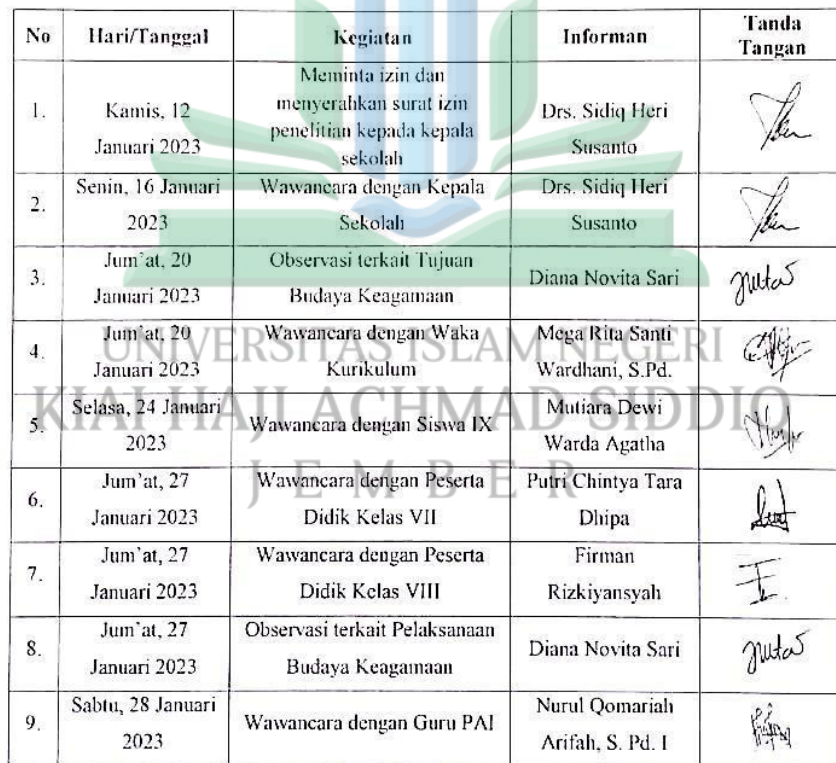 No Hari/Tanggal Kegiatan Informan Tanda
Tangan
1. Kamis, 12
Januari 2023
Meminta izin dan
menyerahkan surat izin
penelitian kepada kepala
sekolah
Drs. Sidiq Heri
Susanto
2. Senin, 16 Januari
2023
Wawancara dengan Kepala
Sekolah
Drs. Sidiq Heri
Susanto
3. Jum'at, 20
Januari 2023
Observasi terkait Tujuan
Budaya Keagamaan
Diana Novita Sari
4. Jum'at, 20
Januari 2023
Wawancara dengan Waka
Kurikulum
Mega Rita Santi
Wardhani, S.Pd.
5. Selasa, 24 Januari
2023
Wawancara dengan Siswa IX
Mutiara Dewi
Warda Agatha
6. Jum'at, 27
Januari 2023
Wawancara dengan Peserta
Didik Kelas VII
Putri Chintya Tara
Dhipa
7. Jum'at, 27
Januari 2023
Wawancara dengan Peserta
Didik Kelas VIII
Firman
Rizkiyansyah
8. Jum'at, 27
Januari 2023
Observasi terkait Pelaksanaan
Budaya Keagamaan
Diana Novita Sari
9. Sabtu, 28 Januari
2023
Wawancara dengan Guru PAI
Nurul Qomariah
Arifah, S. Pd. I
UNIVERSITAS ISLAM NEGERI
KIAI HAJI ACHMAD SIDDIQ
JEMBER